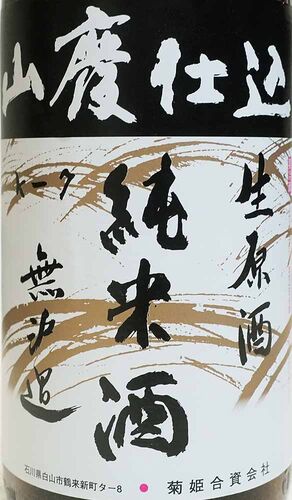 山廢仕込
生原酒
純米酒
無沪過
石川県白山市鶴来新町ター8
菊姫合資会社